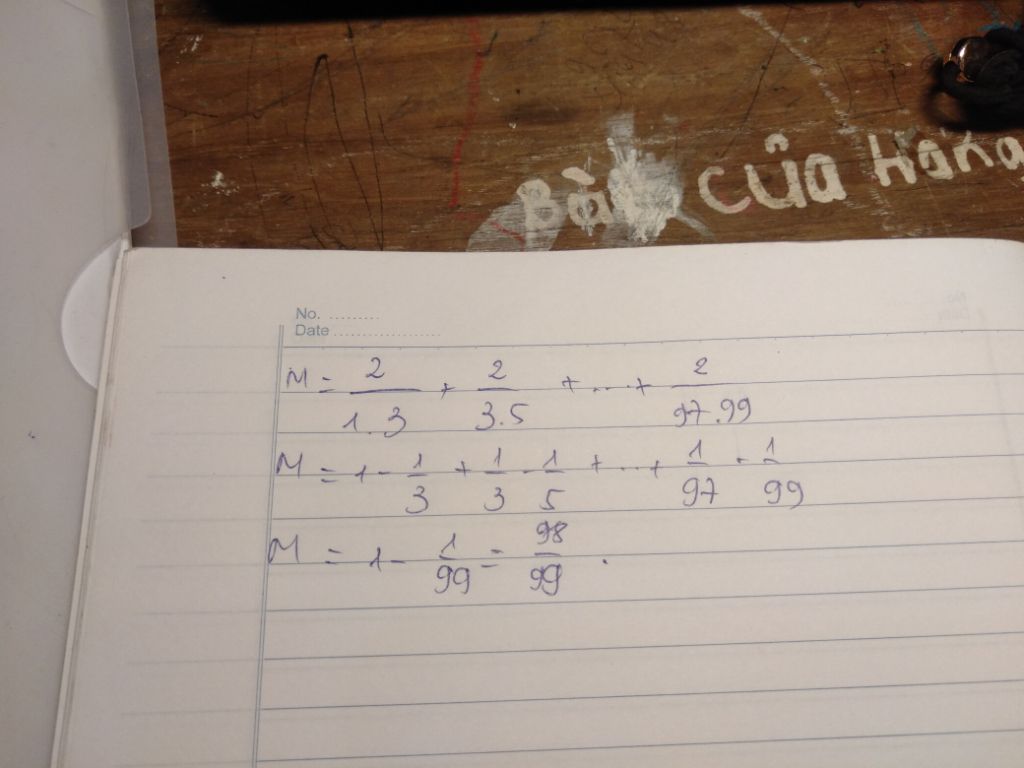 Bài của Hana
No. .........
Date ......................
M = 2/1.3 + 2/3.5 + ... + 2/97.99
M = 1 - 1/3 + 1/3 - 1/5 + ... + 1/97 - 1/99
M = 1 - 1/99 = 98/99 .